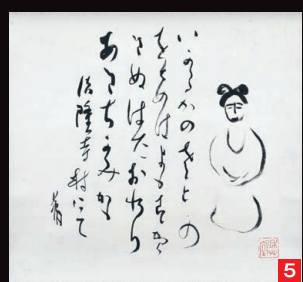 いかるかのさとの
をとめはよもすから
きぬはたおれり
あきちかみかも
法隆寺村にて
5